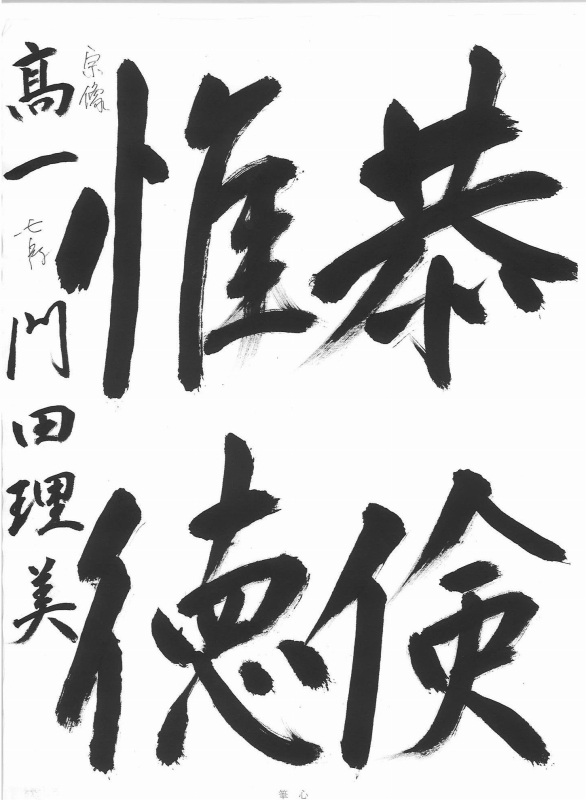 恭倹
惟徳
宗像
高一
七段
門田理美
筆心